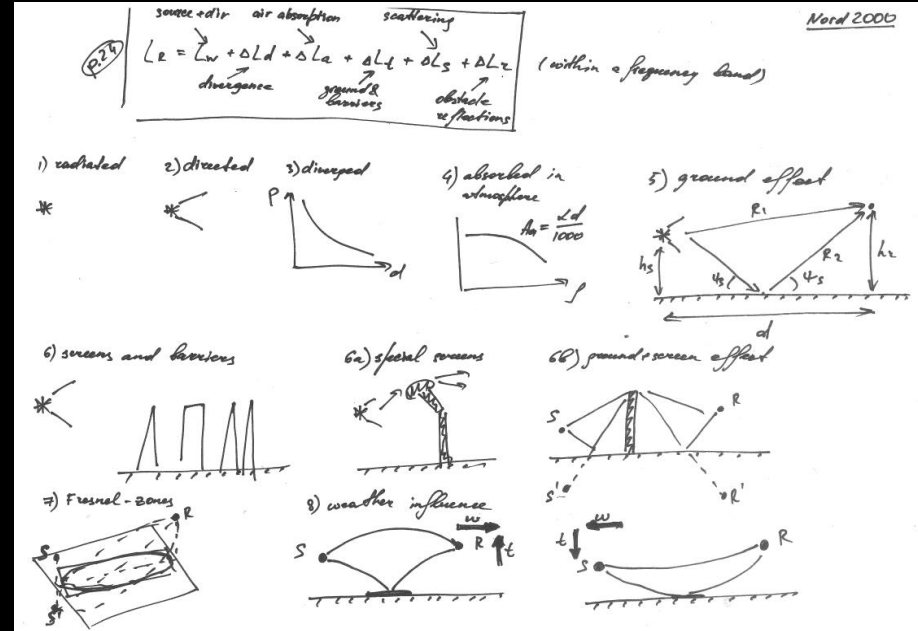 Nord 2000
p.24
source+dir air absorption scattering
L_R = L_w + ΔL_d + ΔL_a + ΔL_t + ΔL_s + ΔL_r (within a frequency band)
divergence ground & barriers obstacle reflections
1) radiated
2) directed
3) diverged
P
d
4) absorbed in
atmosphere
A_a = αd/1000
f
5) ground effect
R1
R2
h_s
ψ_s
ψ_s
h_r
d
6) screens and barriers
6a) special screens
6b) ground+screen effect
S
R
S'
R'
7) Fresnel-zones
S
R
S'
8) weather influence
S
R
w
t
w
t
S
R